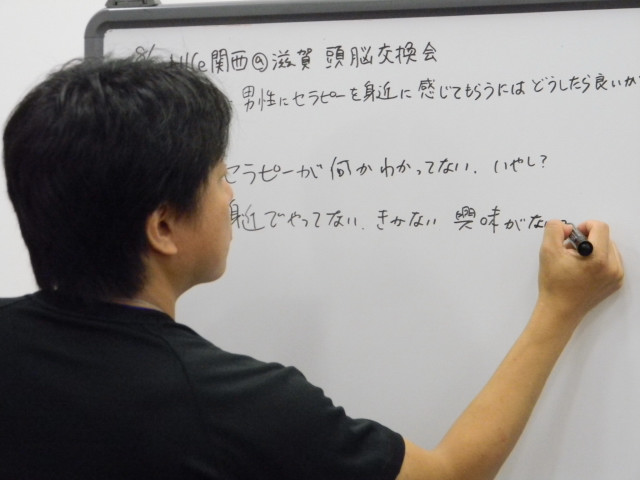 関西@滋賀 頭脳交換会
男性にセラピーを身近に感じてもらうにはどうしたら良いか
セラピーが何かわかってない. いやし?
身近でやってない. きかない 興味がない